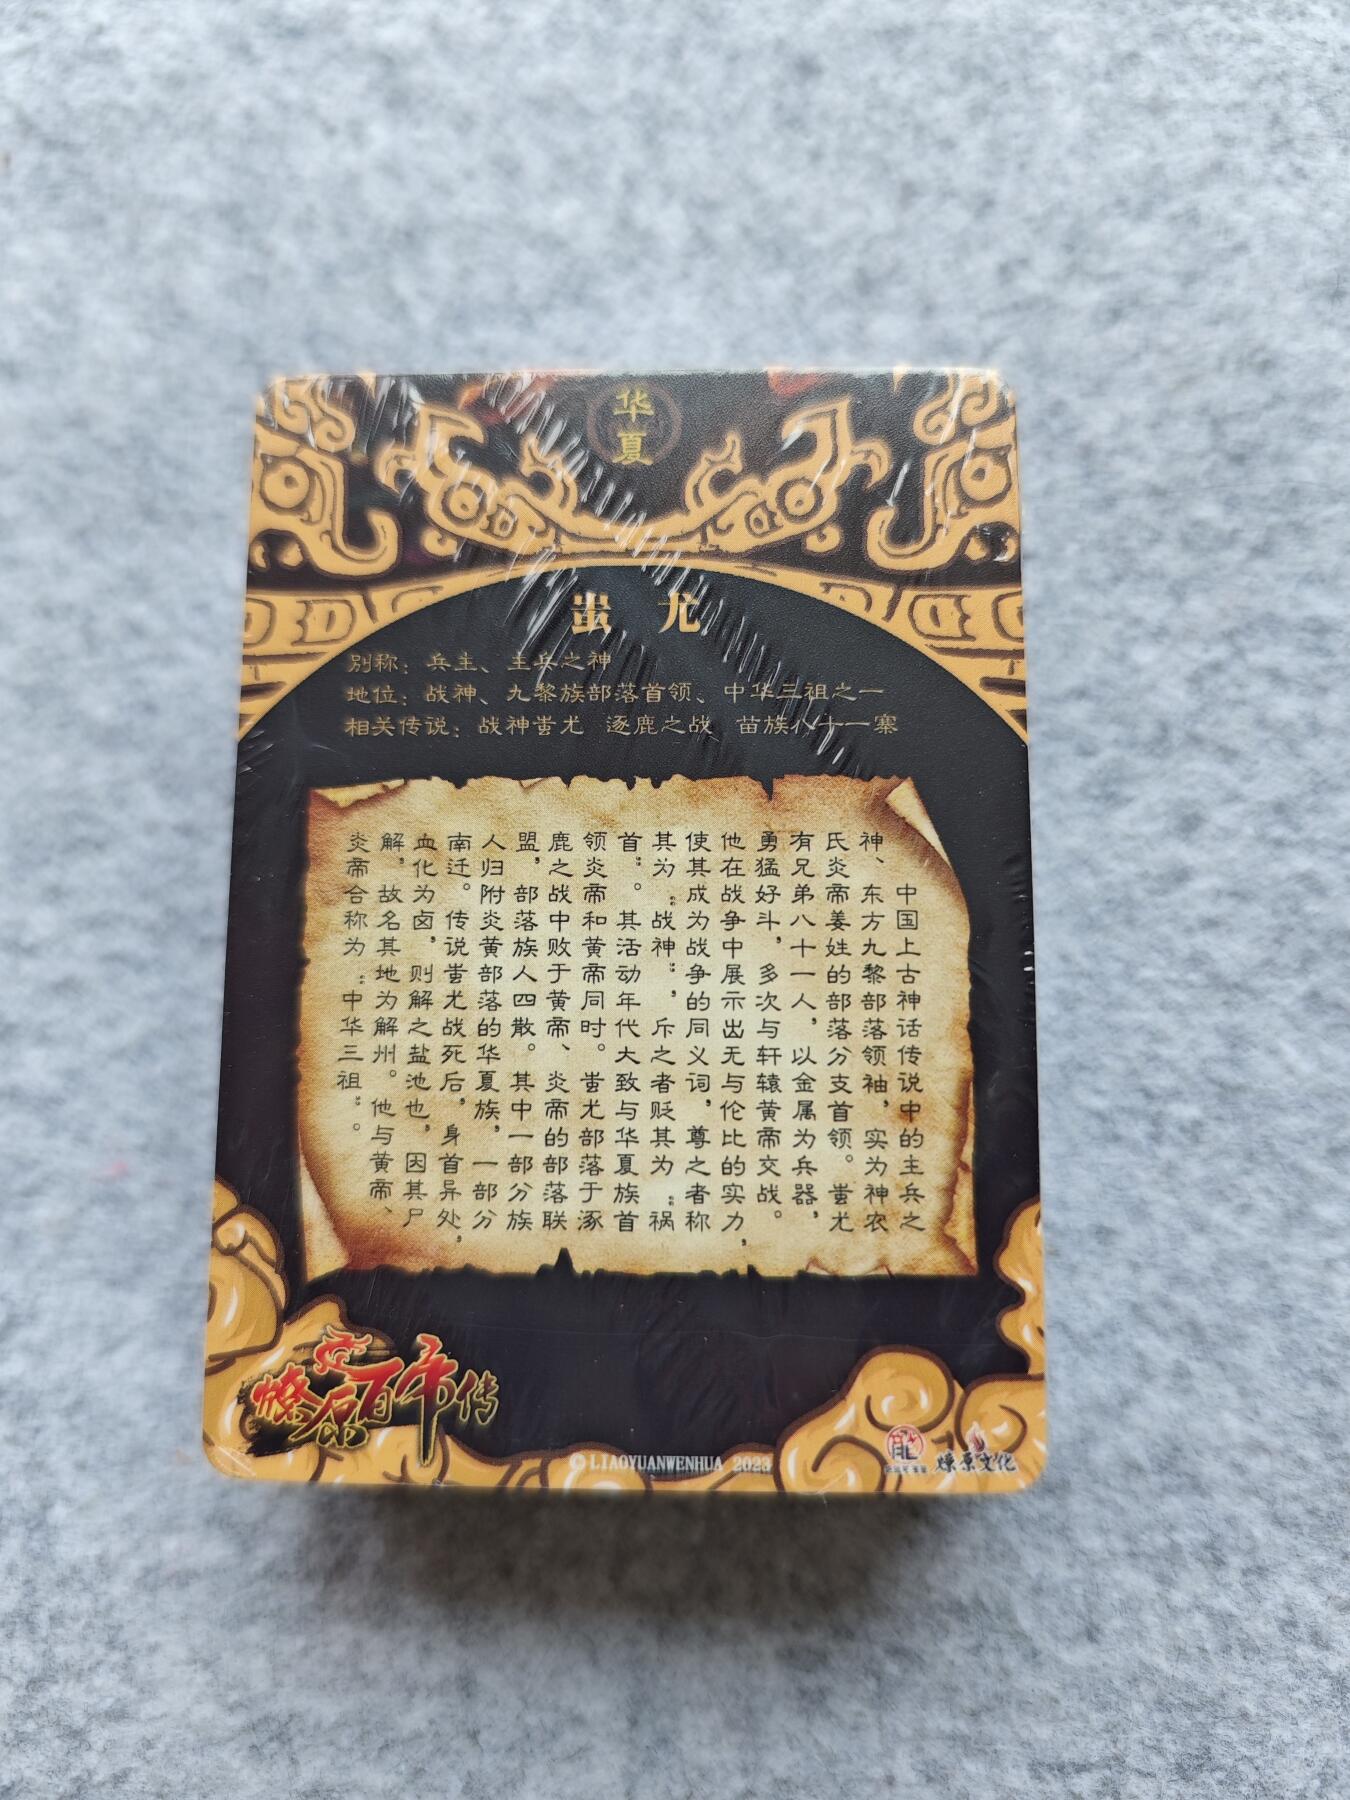 华
夏
蚩尤
别称：兵主、主兵之神
地位：战神、九黎族部落首领、中华三祖之一
相关传说：战神蚩尤 逐鹿之战 苗族八十一寨
中国上古神话传说中的主兵之
神、东方九黎部落领袖，实为神农
氏炎帝姜姓的部落分支首领。蚩尤
有兄弟八十一人，以金属为兵器，
勇猛好斗，多次与轩辕黄帝交战。
他在战争中展示出无与伦比的实力，
使其成为战争的同义词，尊之者称
其为“战神”，斥之者贬其为“祸
首”。其活动年代大致与华夏族首
领炎帝和黄帝同时。蚩尤部落于涿
鹿之战中败于黄帝、炎帝的部落联
盟，部落族人四散。其中一部分族
人归附炎黄部落的华夏族，一部分
南迁。传说蚩尤战死后，身首异处，
血化为卤，则解之盐池也，因其尸
解，故名其地为解州。他与黄帝、
炎帝合称为“中华三祖”。
燎原百帝传
©LIAOYUANWENHUA 2023
燎原文化